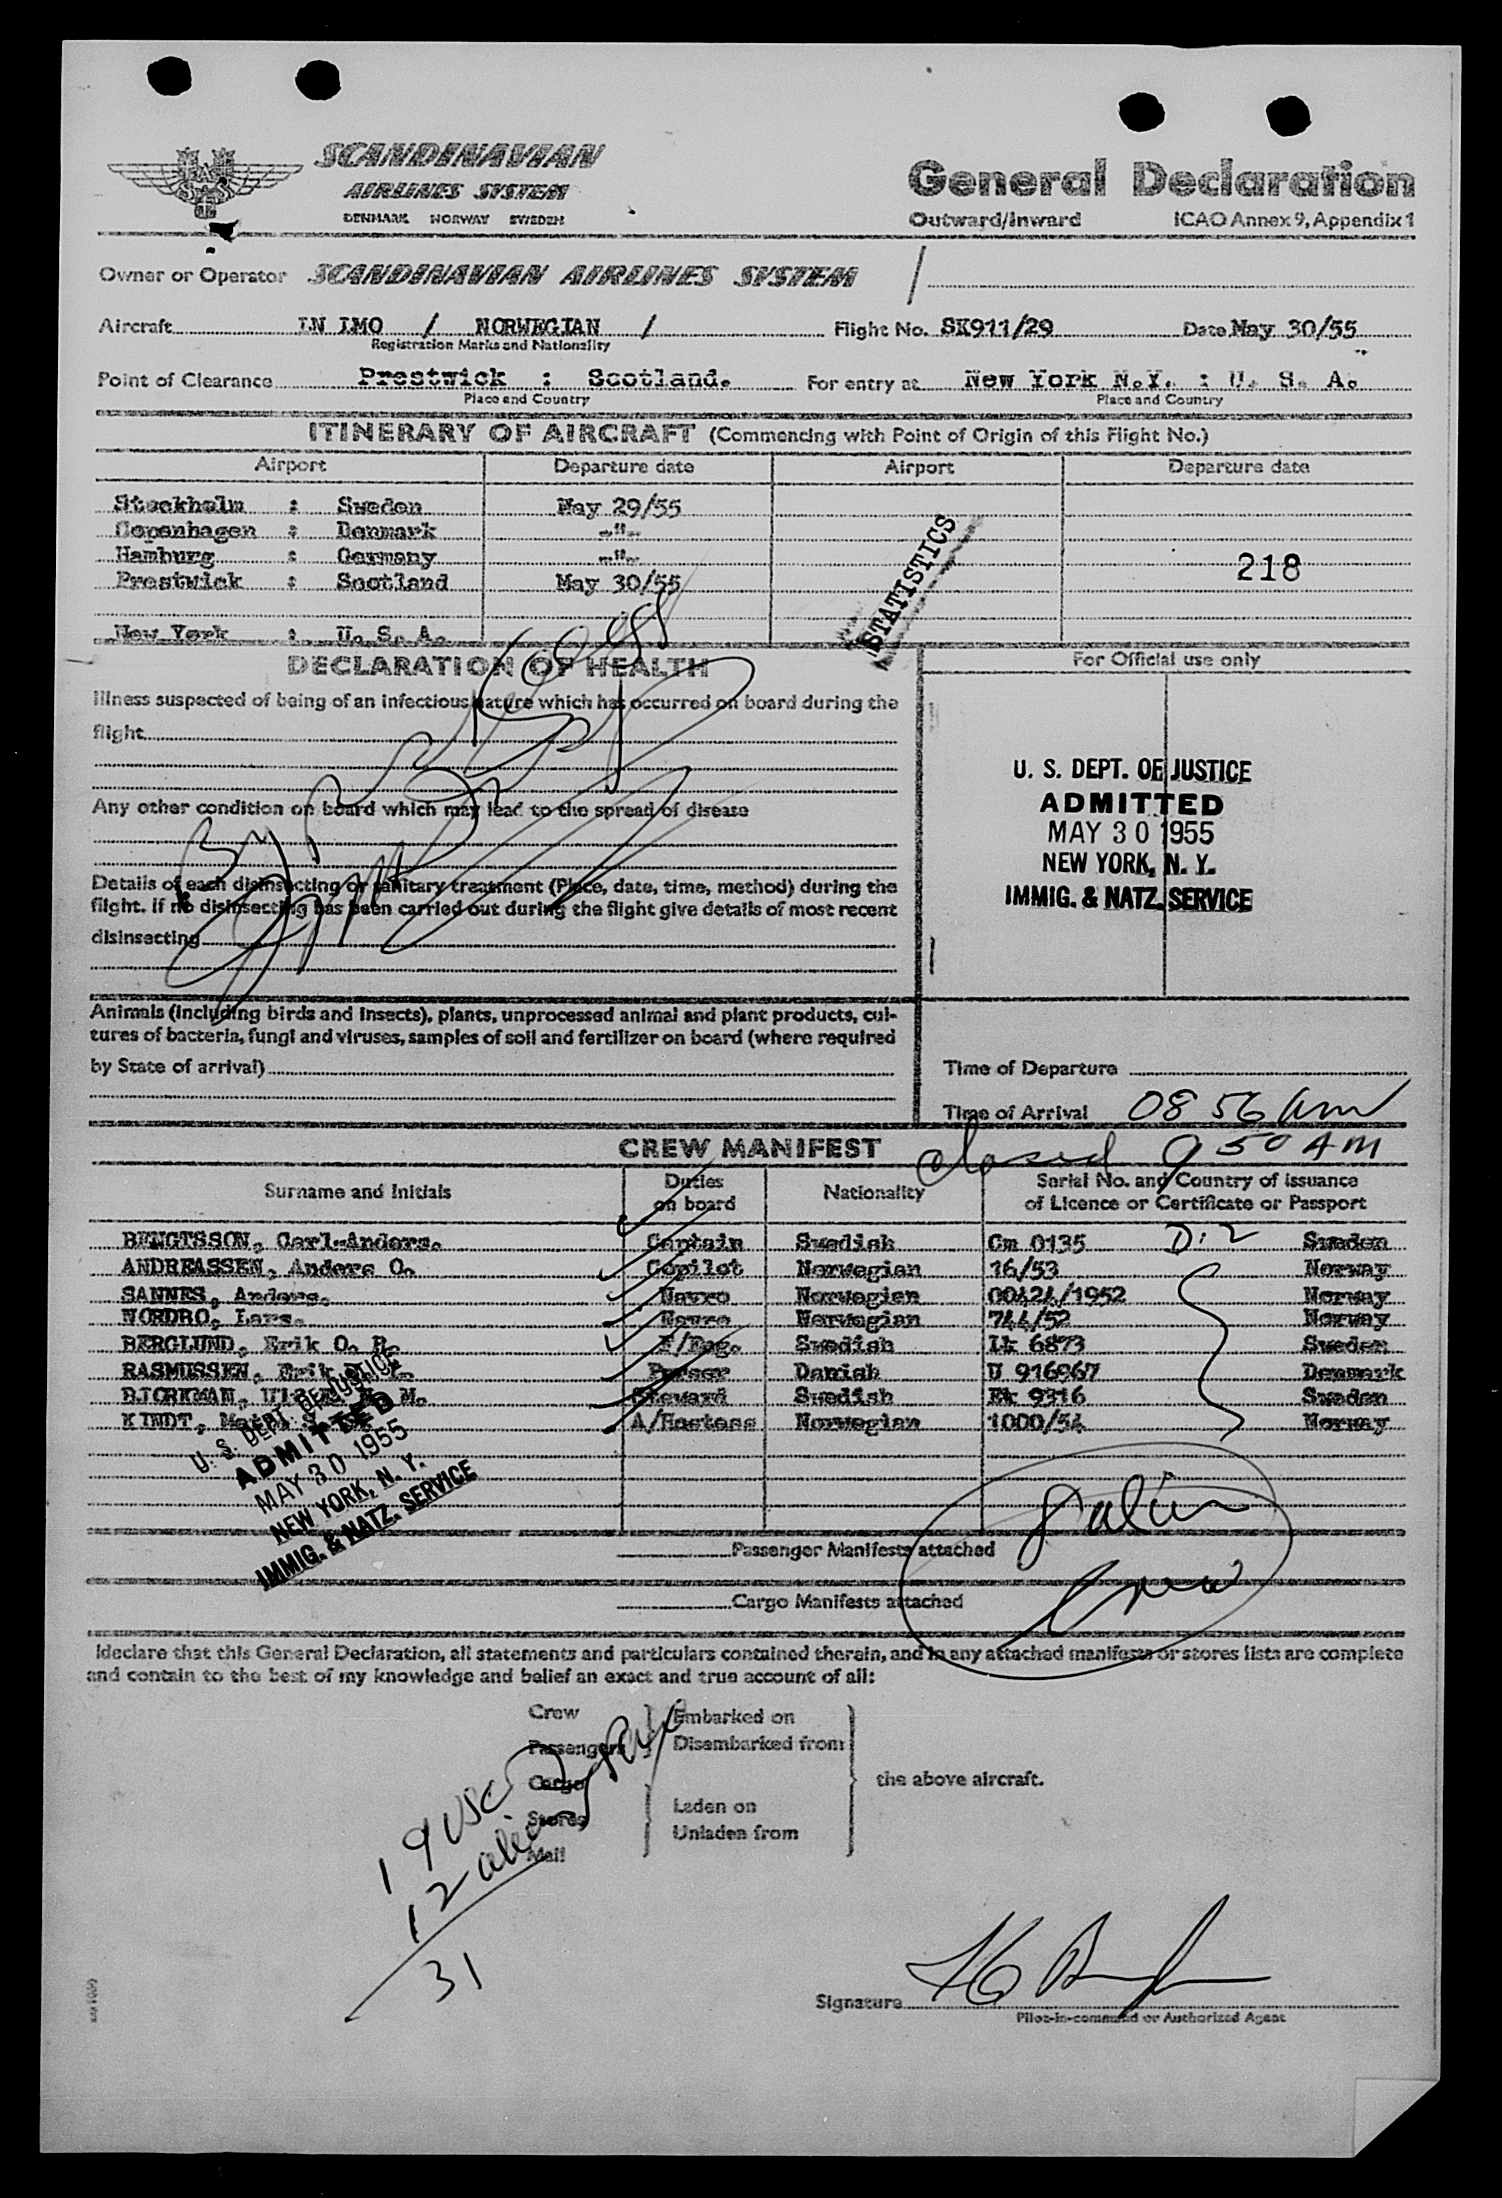 SCANDINAVIAN
AIRLINES SYSTEM
DENMARK NORWAY SWEDEN
General Declaration
Outward/Inward ICAO Annex 9, Appendix 1
Owner or Operator SCANDINAVIAN AIRLINES SYSTEM /
Aircraft LN LMO / NORWEGIAN / Flight No. SK911/29 Date May 30/55
Registration Marks and Nationality
Point of Clearance Prestwick : Scotland. For entry at New York N.Y. : U. S. A.
Place and Country Place and Country
ITINERARY OF AIRCRAFT (Commencing with Point of Origin of this Flight No.)
Airport Departure date Airport Departure date
Stockholm : Sweden May 29/55
Copenhagen : Denmark -"-
Hamburg : Germany -"-
Prestwick : Scotland May 30/55
218
STATISTICS
New York : U. S. A.
DECLARATION OF HEALTH
For Official use only
Illness suspected of being of an infectious nature which has occurred on board during the
flight
Any other condition on board which may lead to the spread of disease
Details of each disinsecting or sanitary treatment (Place, date, time, method) during the
flight. If no disinsecting has been carried out during the flight give details of most recent
disinsecting
U. S. DEPT. OF JUSTICE
ADMITTED
MAY 30 1955
NEW YORK, N. Y.
IMMIG. & NATZ. SERVICE
Animals (including birds and insects), plants, unprocessed animal and plant products, cul-
tures of bacteria, fungi and viruses, samples of soil and fertilizer on board (where required
by State of arrival)
Time of Departure
Time of Arrival 08 56 am
closed 9 50 AM
CREW MANIFEST
Surname and Initials Duties on board Nationality Serial No. and Country of issuance of Licence or Certificate or Passport
BENGTSSON, Carl-Anders. Captain Swedish Cm 0135 D:2 Sweden
ANDREASSEN, Anders O. Copilot Norwegian 16/53 Norway
SANNES, Anders. Navro Norwegian 00424/1952 Norway
NORDRO, Lars. Navro Norwegian 744/52 Norway
BERGLUND, Erik O. R. F/Eng. Swedish Lk 6873 Sweden
RASMUSSEN, Erik Purser Danish U 916967 Denmark
BJORKMAN, M. Steward Swedish Rk 9316 Sweden
KINDT, A/Hostess Norwegian 1000/54 Norway
U. S. DEPT. OF JUSTICE
ADMITTED
MAY 30 1955
NEW YORK, N. Y.
IMMIG. & NATZ. SERVICE
8 alien
crew
Passenger Manifests attached
Cargo Manifests attached
I declare that this General Declaration, all statements and particulars contained therein, and in any attached manifests or stores lists are complete
and contain to the best of my knowledge and belief an exact and true account of all:
Crew Embarked on
Passengers Disembarked from
Cargo the above aircraft.
Stores Laden on
Mail Unladen from
19 USC
12 alien
31
Signature
Pilot-in-command or Authorized Agent